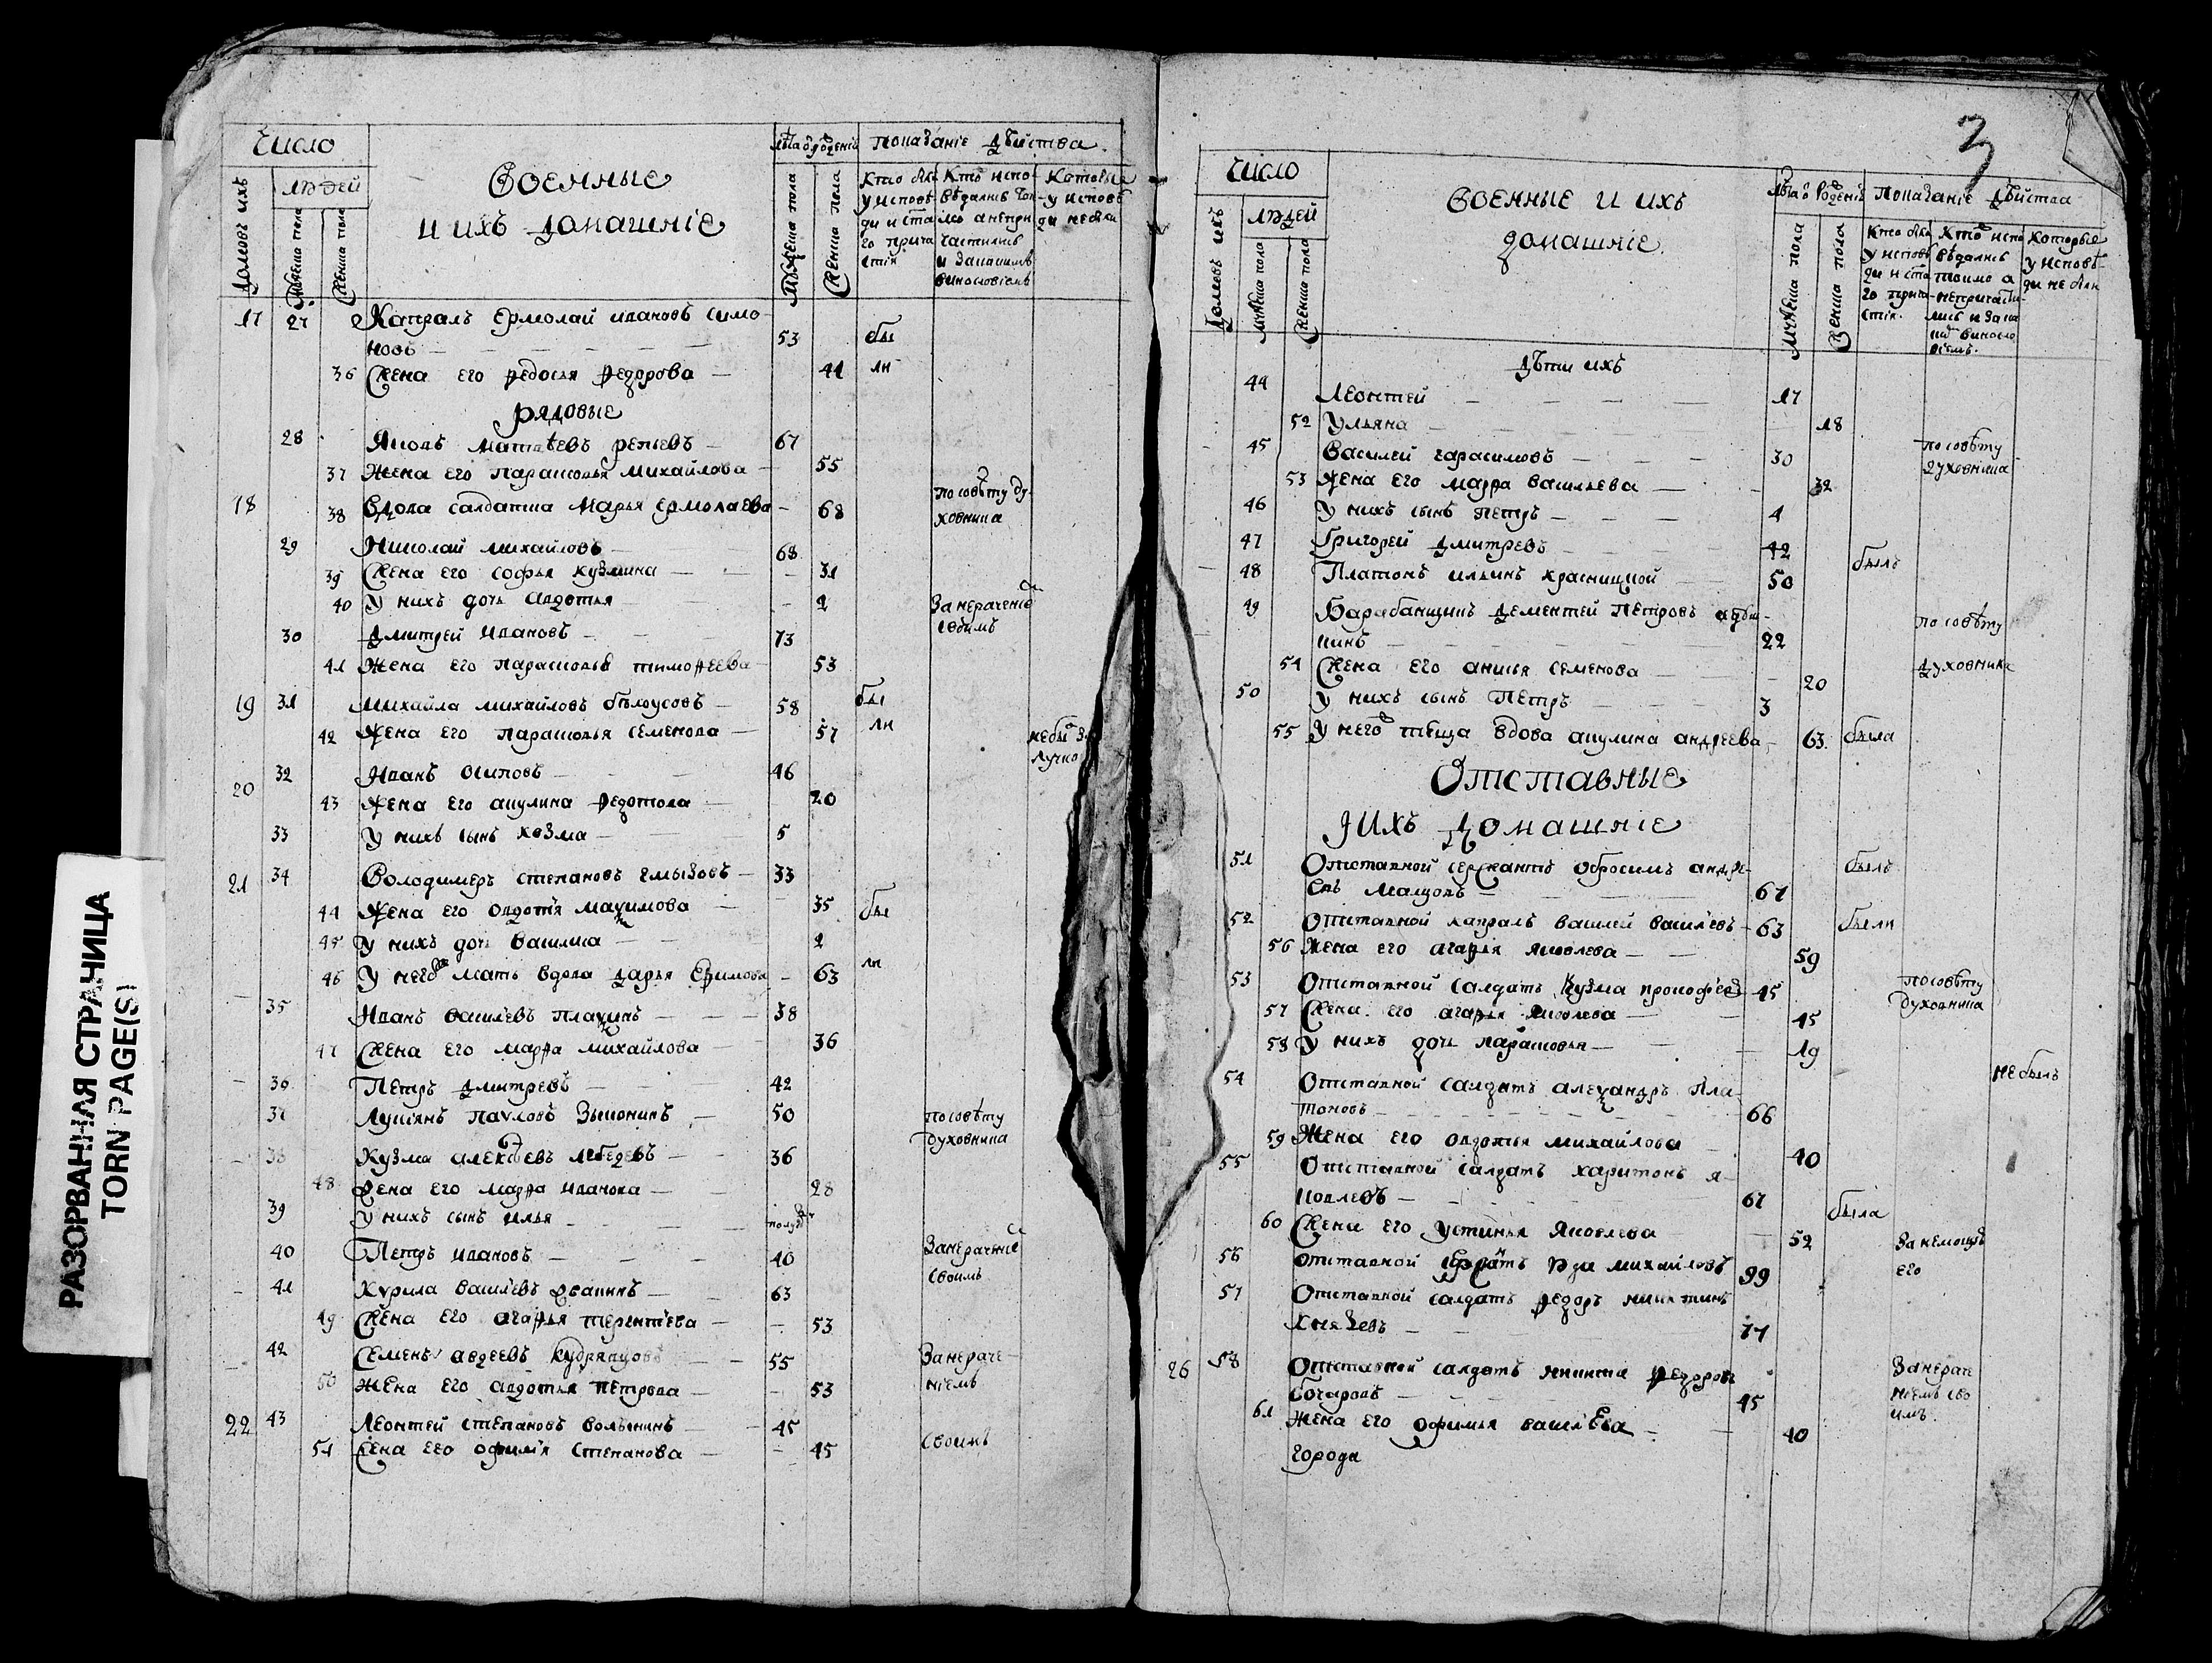 РАЗОРВАННАЯ СТРАНИЦА
TORN PAGE(S)
Число
Военные
и ихъ домашніе
лѣта от рожденій
показаніе дѣйства.
домовъ ихъ
людей
мужеска пола
женска пола
мужеска пола
женска пола
Кто были у исповѣди и стаго причастія
Кто исповѣдались токмо а непричастились и за какимъ винословіемъ
Которые у исповѣди не были
17 27 Капралъ Ермолай ивановъ симо
новъ 53 бы
36 Жена его Ѳедосья Ѳедорова 41 ли
рядовые
28 Яковъ матвѣевъ репьевъ 67
37 Жена его парасковья михайлова 55
18 38 Вдова салдатка Марья Ермолаева 68 по совѣту духовника
29 Николай михайловъ 68
39 Жена его софья кузмина 31
40 У нихъ дочь авдотья 2 За нерачениемъ
30 Дмитрей ивановъ 73 собимъ
41 Жена его парасковья тимоѳеева 53
19 31 Михайла михайловъ бѣлоусовъ 58 бы
42 Жена его парасковья семенова 57 ли
20 32 Иванъ осиповъ 46
43 Жена его акулина Ѳедотова 20
33 У нихъ сынъ козма 5
21 34 Володимеръ степановъ 33
44 Жена его овдотья максимова 35 бы
45 У нихъ дочь василиса 2
46 У него мать вдова дарья Ефимова 63 ли
35 Иванъ васильевъ 38
47 Жена его марѳа михайлова 36
36 Петръ дмитревъ 42
37 Лукьянъ павловъ 50 по совѣту
38 Кузма алексѣевъ лебедевъ 36 духовника
48 Жена его марѳа иванова 28
39 У нихъ сынъ илья
40 Петръ ивановъ 40 За нерачениемъ
41 Кирила васильевъ 63 своимъ
49 Жена его агаѳья терентьева 53
42 Семенъ авдеевъ кудрявцовъ 55 За нераче
50 Жена его авдотья петрова 53 ніемъ
22 43 Леонтей степановъ волынинъ 45
51 Жена его офимія Степанова 45 своимъ
3
Число
Военные и ихъ
домашніе.
лѣта от рожденія
показаніе дѣйства
домовъ ихъ
людей
мужеска пола
женска пола
мужеска пола
женска пола
Кто были у исповѣди и стаго причастія.
Кто исповѣдались токмо а непричастились и за каким винословіемъ.
которые у исповѣди не были
дѣти ихъ
44 Леонтей 17
52 Ульяна 18
45 Василей гарасимовъ 30 по совѣту
53 Жена его марѳа васильева 32 духовника
46 У нихъ сынъ петръ 4
47 Григорей дмитревъ 42
48 Платонъ ильинъ красницкой 50 былъ
49 Барабанщикъ дементей петровъ
кинъ 22 по совѣту
54 Жена его анисья семенова 20 духовника
50 У нихъ сынъ петръ 3
55 У него теща вдова акулина андреева 63 была
Отставные
и ихъ домашніе
51 Отставной сержантъ обросимъ андре
евъ 61 былъ
52 Отставной капралъ василей васильевъ 63 были
56 Жена его агаѳья яковлева 59
53 Отставной салдатъ Кузма прокоѳьевъ 45 по совѣту
57 Жена его агаѳья яковлева 45 духовника
58 У нихъ дочь парасковья 19
54 Отставной салдатъ александръ пла
тоновъ 66 не былъ
59 Жена его овдотья михайлова 40
55 Отставной салдатъ харитонъ я
ковлевъ 67
60 Жена его устинья яковлева 52 была
56 Отставной михайловъ 99 За немощью его
57 Отставной салдатъ Ѳедоръ никитинъ
князевъ 77
26 58 Отставной салдатъ никита Ѳедоровъ
бочаровъ 45 За нерачениемъ своимъ.
61 Жена его офимья васильева 40
города